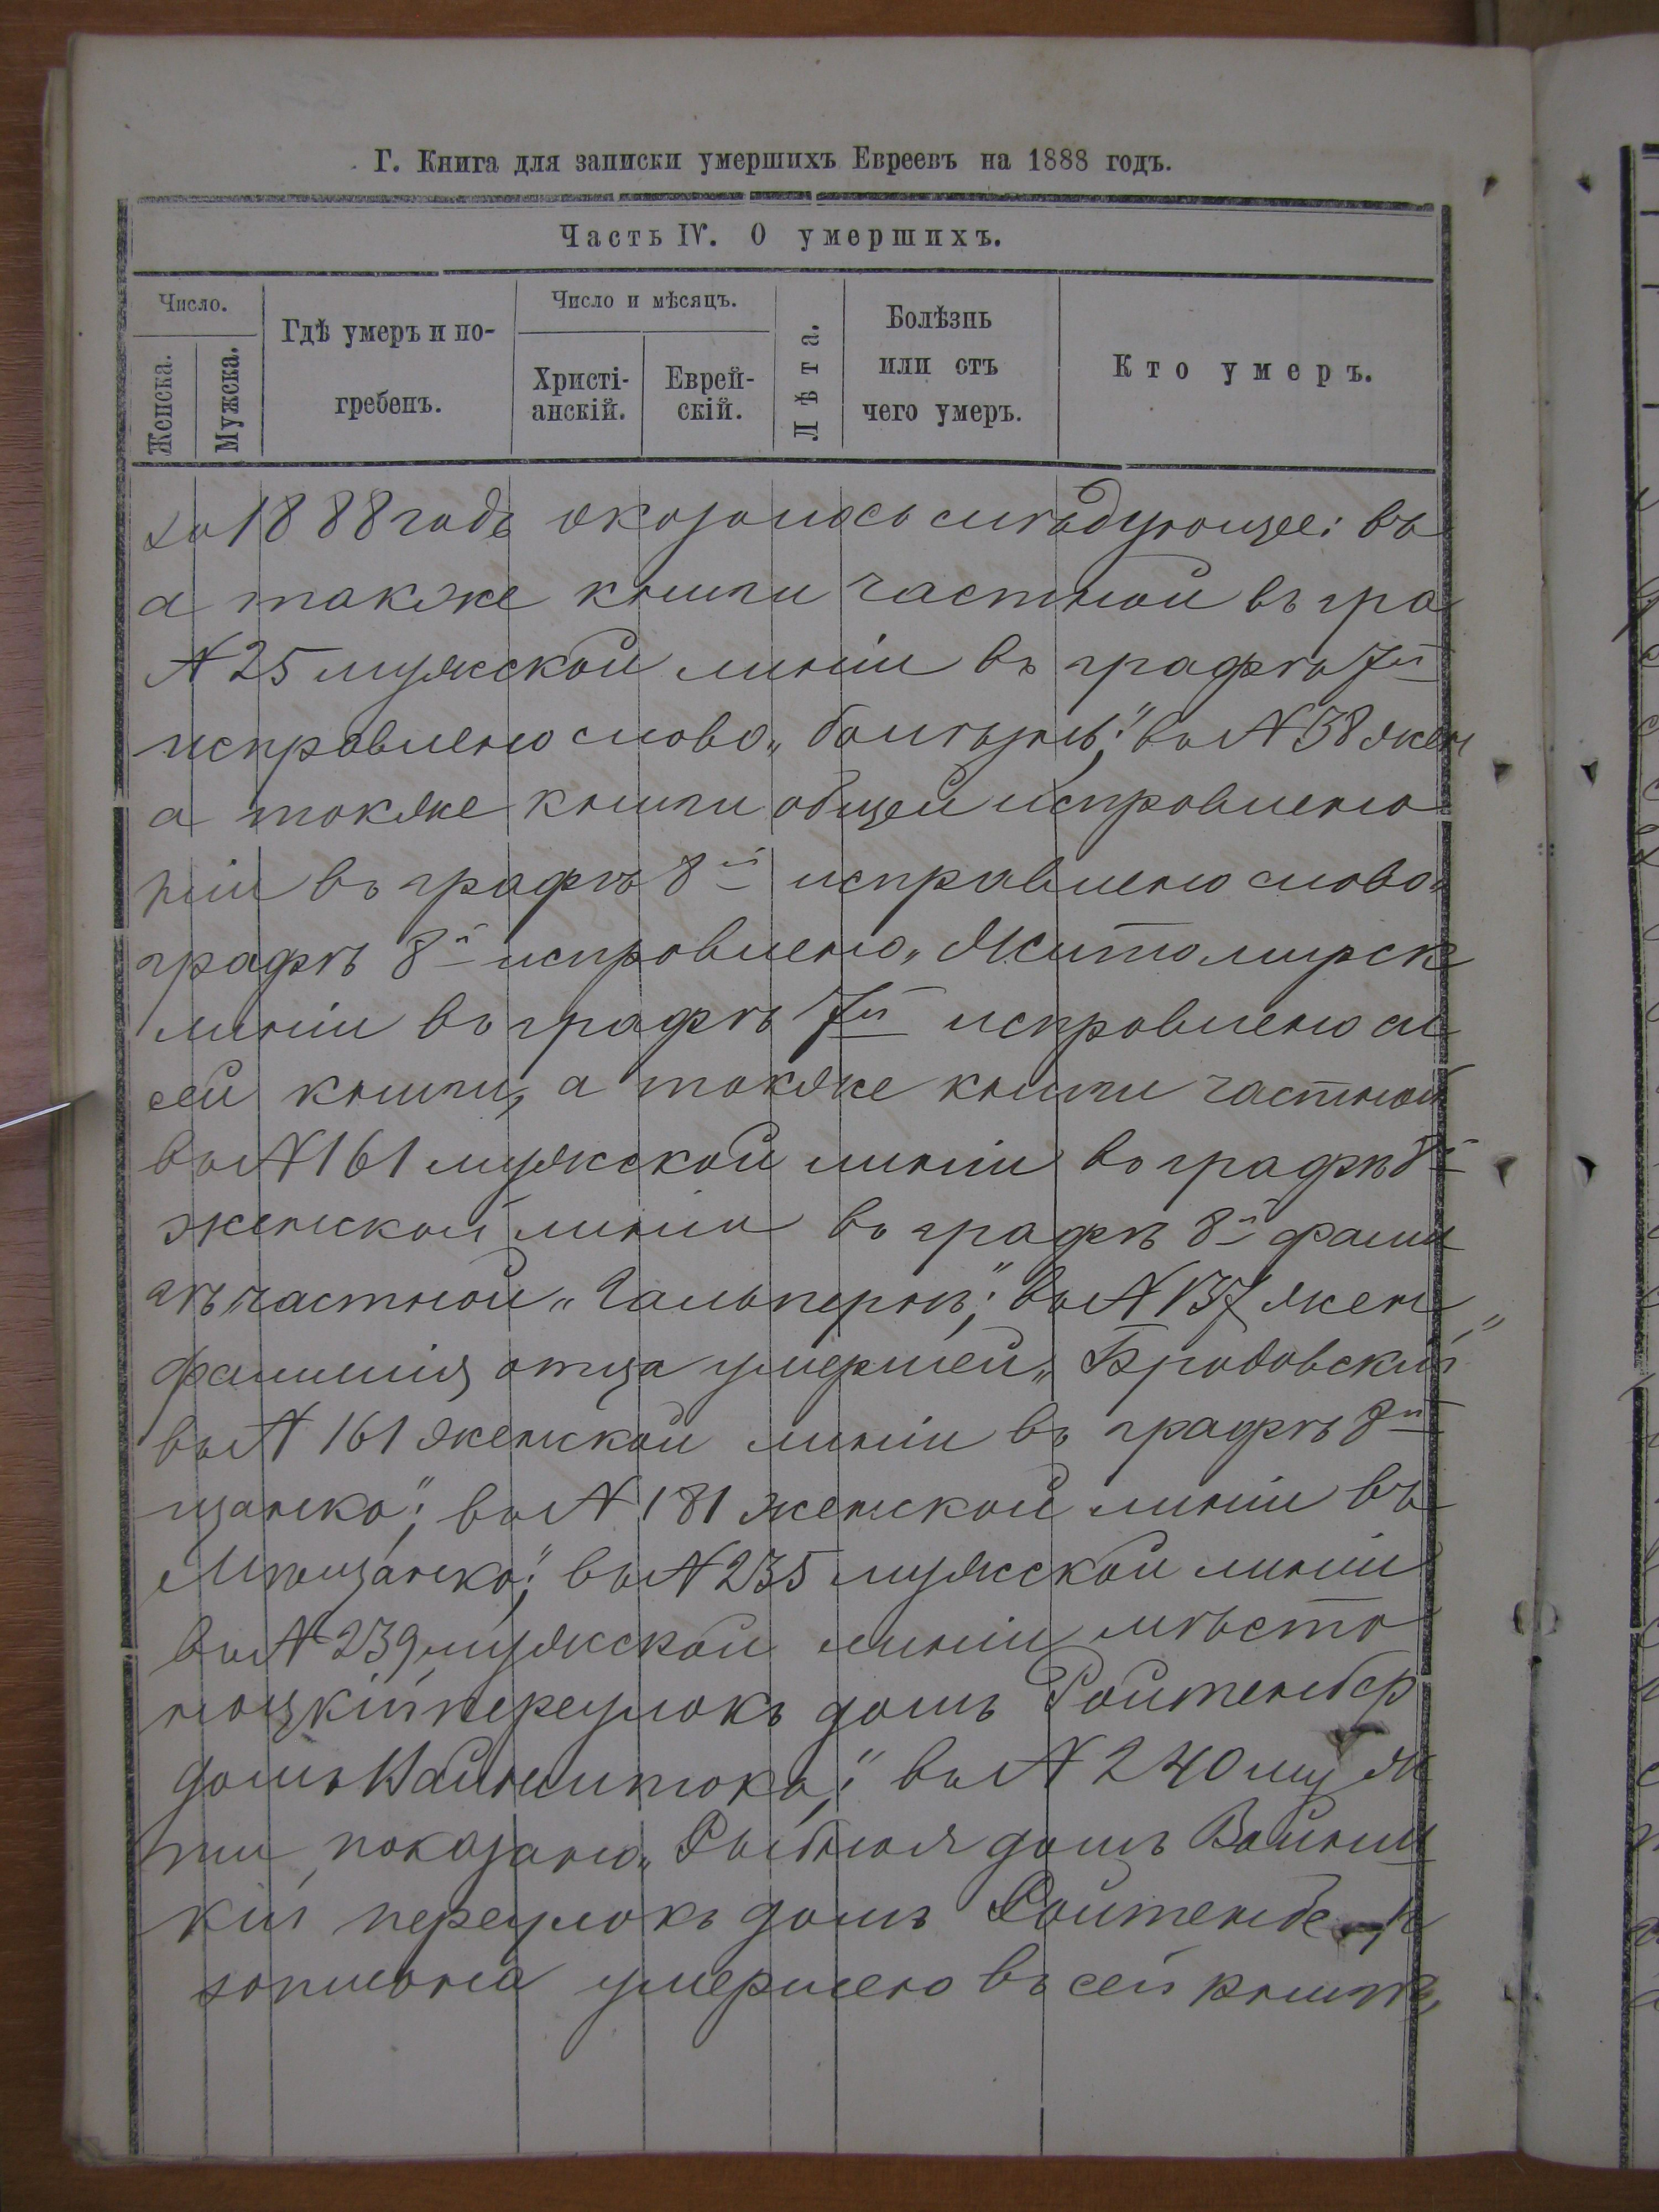 Г. Книга для записки умершихъ Евреевъ на 1888 годъ.
Часть IV. О умершихъ.
Число.
Женска.
Мужска.
Гдѣ умеръ и по-
гребенъ.
Число и мѣсяцъ.
Христі-
анскій.
Еврей-
скій.
Лѣта.
Болѣзнь
или отъ
чего умеръ.
Кто умеръ.
за 1888 годъ оказалось слѣдующее: въ
а также книги частной въ гра
№ 25 мужской линіи въ графѣ 7й
исправлено слово „болѣзнь"; въ № 38 жен
а также книги общей исправлено
ніи въ графѣ 8й исправлено слово „
графѣ 8й исправлено „Житомирск
линіи въ графѣ 7й исправлено сл
сей книги, а также книги частной
въ № 161 мужской линіи въ графѣ 8й
женской линіи въ графѣ 8й фами
гѣ частной „Гальпернъ"; въ № 137 жен
фамилія отца умершей „Бродовскій"
въ № 161 женской линіи въ графѣ 8й
щанка"; въ № 181 женской линіи въ
Мѣщанка"; въ № 235 мужской линіи
въ № 239 мужской линіи мѣсто
ноцкій переулокъ домъ Ройтенбер
домъ Вайнштока"; въ № 240 муж
ти показано „Рыбная домъ Вайнш
кій переулокъ домъ Ройтенберг
записана умершею въ сей книгѣ,